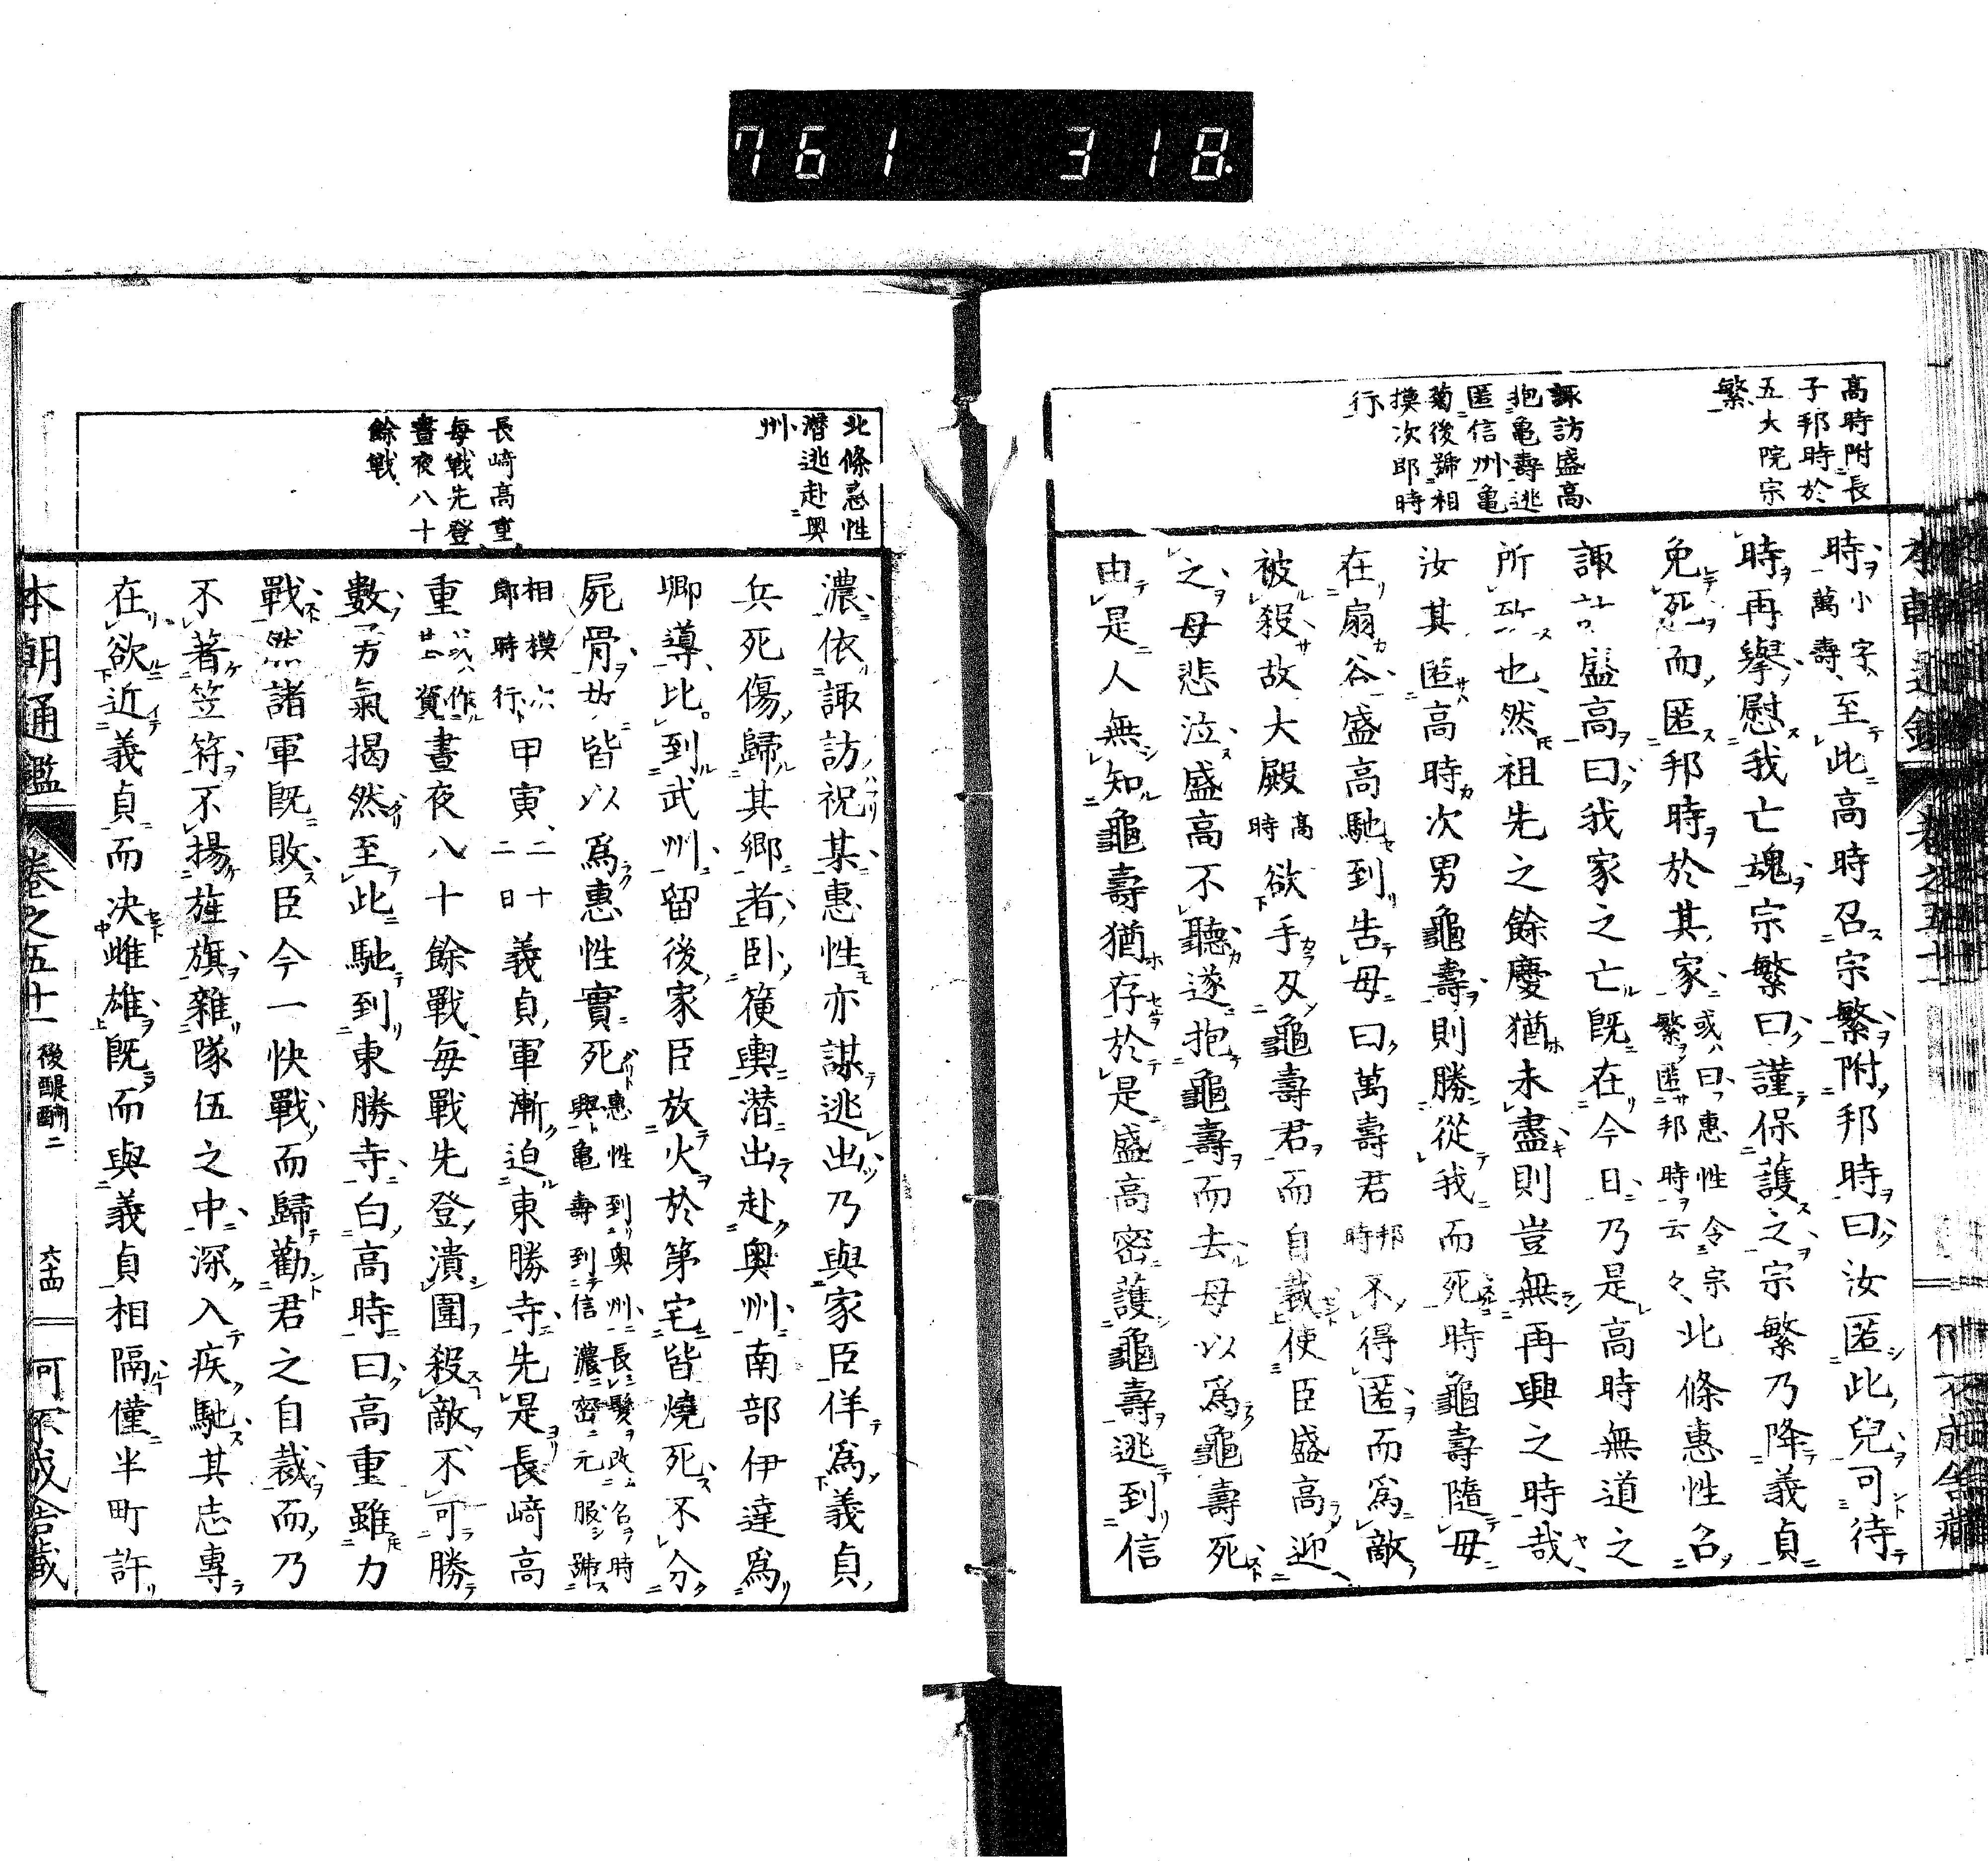 761 318
高時附長
子邦時於
五大院宗
繁
諏訪盛高
抱亀壽逃
匿信州亀
菊後號相
摸次郎時
行
時小字萬壽至此高時召宗繁附邦時曰汝匿此兒可待
時再擧慰我亡魂宗繁曰謹保護之宗繁乃降義貞
免死而匿邦時於其家或曰惠性令宗繁匿邦時云々北條惠性召
諏訪盛高曰我家之亡既在今日乃是高時無道之
所致也然祖先之餘慶猶未盡則豈無再興之時哉
汝其匿高時次男龜壽則勝從我而死時龜壽隨母
在扇谷盛高馳到告母曰萬壽君邦時不得匿而爲敵
被殺故大殿高時欲手刃龜壽君而自裁使臣盛高迎
之母悲泣盛高不聽遂抱龜壽而去母以爲龜壽死
由是人無知龜壽猶存於是盛高密護龜壽逃到信
北條惠性
潜逃赴奥
州
長﨑高重
每戰先登
晝夜八十
餘戰
濃依諏訪祝某惠性亦謀逃出乃與家臣佯爲義貞
兵死傷歸其鄉者卧篊輿潜出赴奥州南部伊達爲
鄉導比到武州留後家臣放火於第宅皆燒死不分
屍骨故皆以爲惠性實死惠性到奥州長髮改名時興亀壽到信濃密元服號
相摸次郎時行甲寅二十二日義貞軍漸迫東勝寺先是長﨑高
重或作高資晝夜八十餘戰每戰先登潰圍殺敵不可勝
數勇氣揭然至此馳到東勝寺白高時曰高重雖力
戰然諸軍既敗臣今一快戰而歸勸君之自裁而乃
不著笠符不揚旌旗雜隊伍之中深入疾馳其志專
在欲近義貞而决雌雄既而與義貞相隔僅半町許
本朝通鑑 卷之五十一 後醍醐二 六十四 可不成舍藏